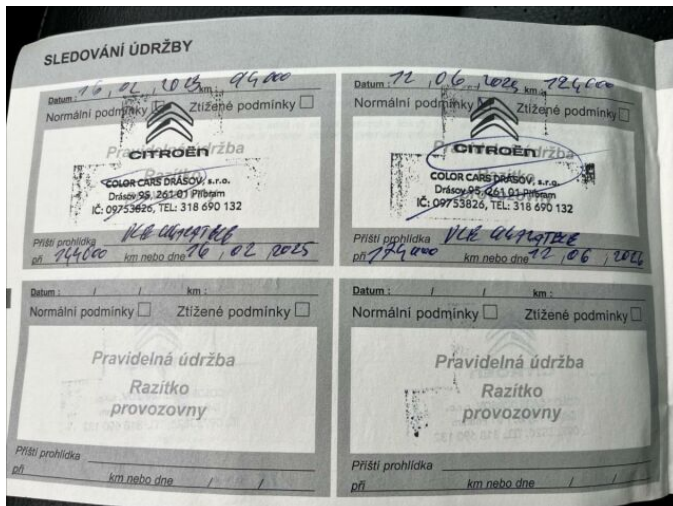 SLEDOVÁNÍ ÚDRŽBY
Datum: 16, 02, 2023 km: 94 000
Normální podmínky Ztížené podmínky
Pravidelná údržba
CITROËN
Razítko
COLOR CARS DRÁSOV, s.r.o.
Drásov 95, 261 01 Příbram
IČ: 09753826, TEL: 318 690 132
Příští prohlídka DLE UKAZATELE
při 144 000 km nebo dne 16, 02, 2025
Datum: 12, 06, km: 124 000
Normální podmínky Ztížené podmínky
Pravidelná údržba
CITROËN
COLOR CARS DRÁSOV, s.r.o.
Drásov 95, 261 01 Příbram
IČ: 09753826, TEL: 318 690 132
Příští prohlídka DLE UKAZATELE
při 174 000 km nebo dne 12, 06,
Datum: / / km:
Normální podmínky Ztížené podmínky
Pravidelná údržba
Razítko
provozovny
Příští prohlídka
při km nebo dne / /
Datum: / / km:
Normální podmínky Ztížené podmínky
Pravidelná údržba
Razítko
provozovny
Příští prohlídka
při km nebo dne / /